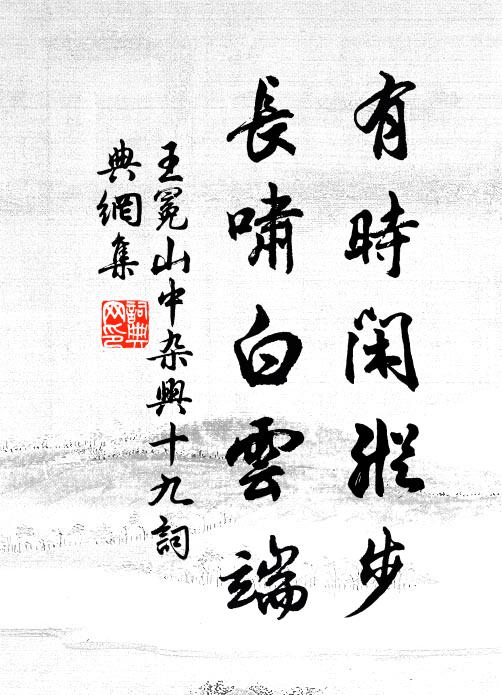 有時閑縱步
長嘯白雲端
王冕山中杂興十九詞
典網集
詞典
网印